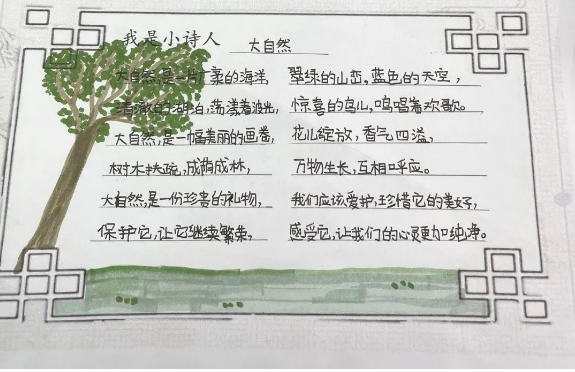 我是小诗人 大自然
大自然,是一片广袤的海洋, 翠绿的山峦,蓝色的天空,
清澈的湖泊,荡漾着波光, 惊喜的鸟儿,鸣唱着欢歌。
大自然,是一幅美丽的画卷, 花儿绽放,香气四溢,
树木扶疏,成荫成林, 万物生长,互相呼应。
大自然,是一份珍贵的礼物, 我们应该爱护,珍惜它的美好,
保护它,让它继续繁荣, 感受它,让我们的心灵更加纯净。